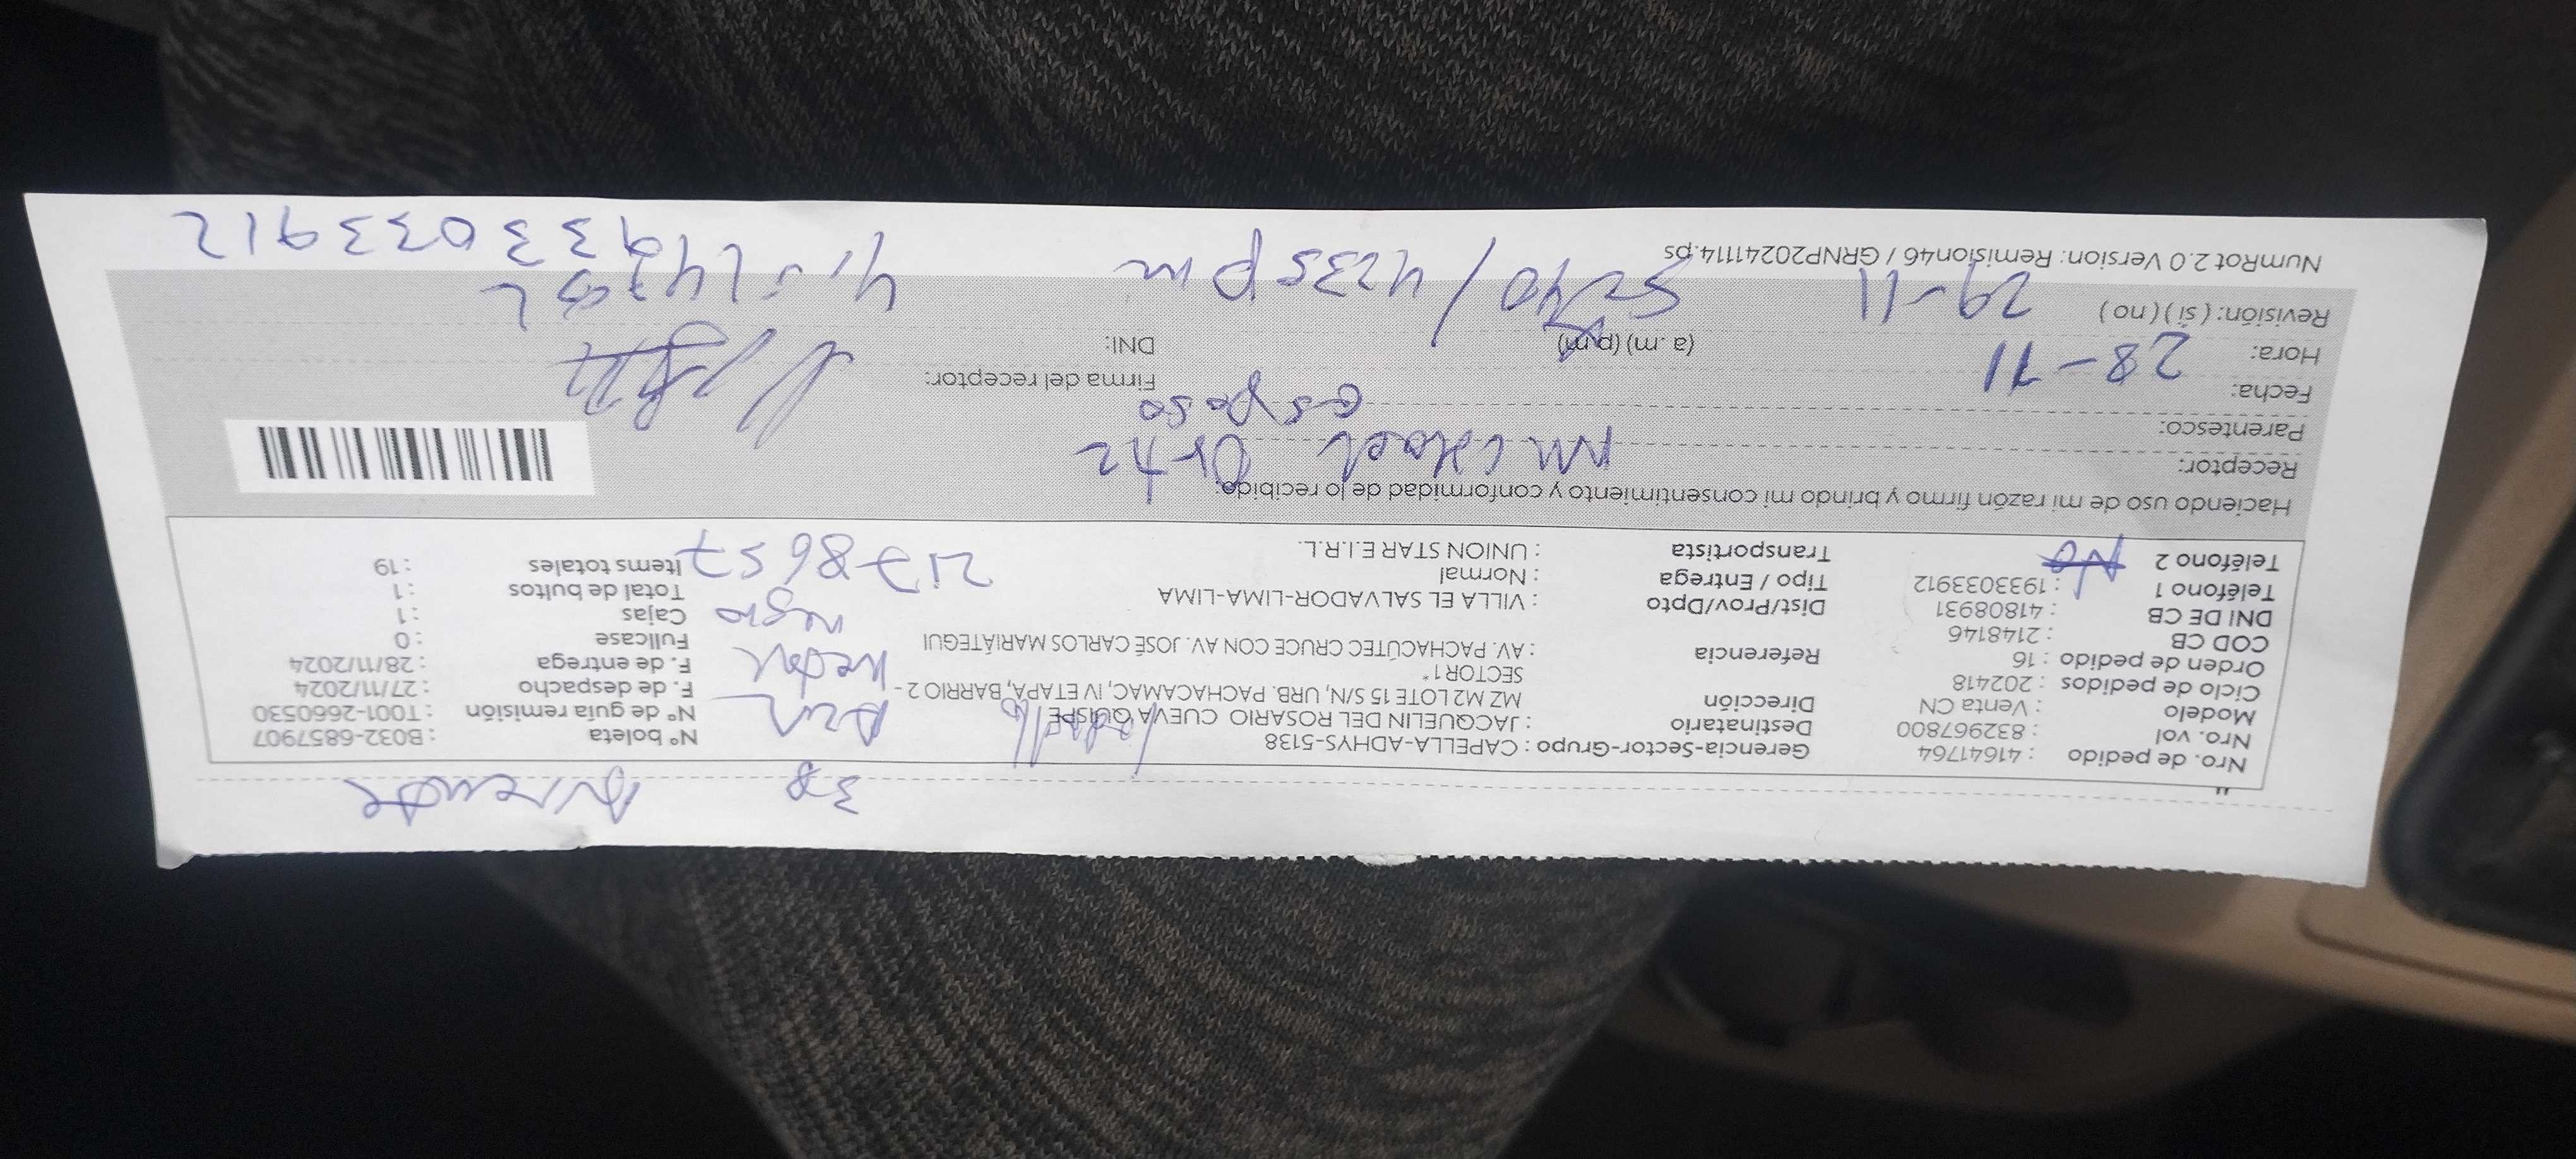 38 Ausente
Nro. de pedido : 41641764
Nro. vol : 832967800
Modelo : Venta CN
Ciclo de pedidos : 202418
Orden de pedido : 16
COD CB : 2148146
DNI DE CB : 41808931
Teléfono 1 : 1933033912
Teléfono 2 No
Gerencia-Sector-Grupo : CAPELLA-ADHYS-5138
Destinatario : JACQUELIN DEL ROSARIO CUEVA QUISPE
Dirección MZ M2 LOTE 15 S/N, URB. PACHACAMAC, IV ETAPA, BARRIO 2 -
SECTOR 1"
Referencia : AV. PACHACÚTEC CRUCE CON AV. JOSÉ CARLOS MARIÁTEGUI
Dist/Prov/Dpto : VILLA EL SALVADOR-LIMA-LIMA
Tipo / Entrega : Normal
Transportista : UNION STAR E.I.R.L.
ladrillo
negro
2178657
Nº boleta : B032-6857907
Nº de guía remisión : T001-2660530
F. de despacho : 27/11/2024
F. de entrega : 28/11/2024
Fullcase : 0
Cajas : 1
Total de bultos : 1
Items totales : 19
Haciendo uso de mi razón firmo y brindo mi consentimiento y conformidad de lo recibido:
Receptor:
Parentesco: esposo
Fecha: 28-11
Firma del receptor:
Hora: (a. m) (p.m)
DNI:
Revisión: ( sí ) ( no ) 29-11
NumRot 2.0 Version: Remision46 / GRNP20241114.ps
933033912